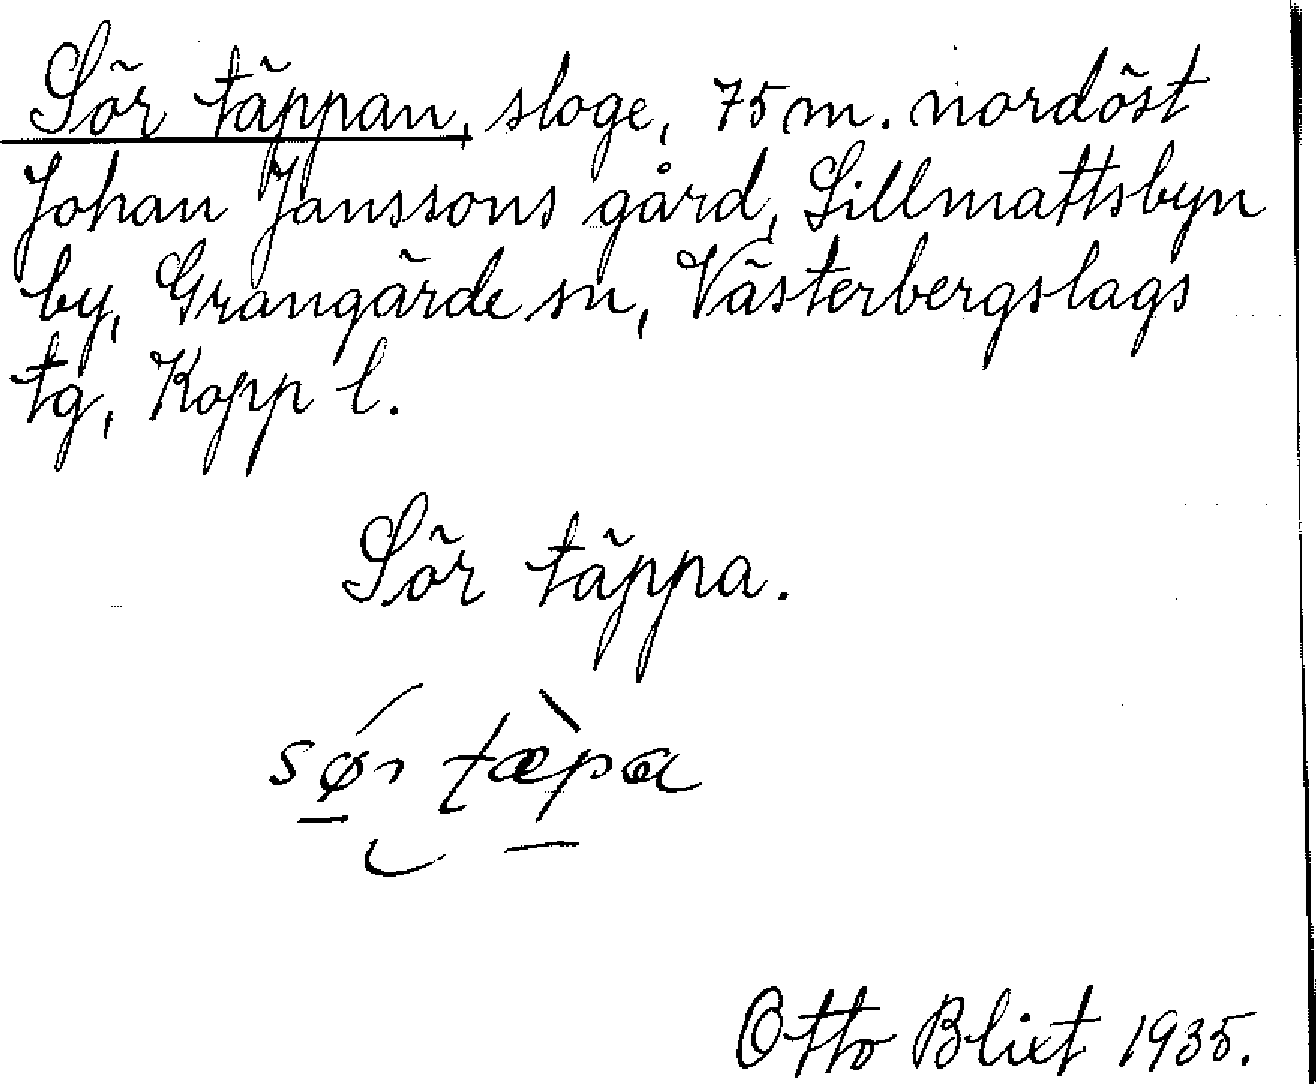 Sör täppan, sloge, 75 m. nordöst
Johan Janssons gård, Lillmattsbyn
by, Grangärde sn, Västerbergslags
tg, Kopp l.
Sör täppa.
sǿr tæ̀pa
Otto Blixt 1935.